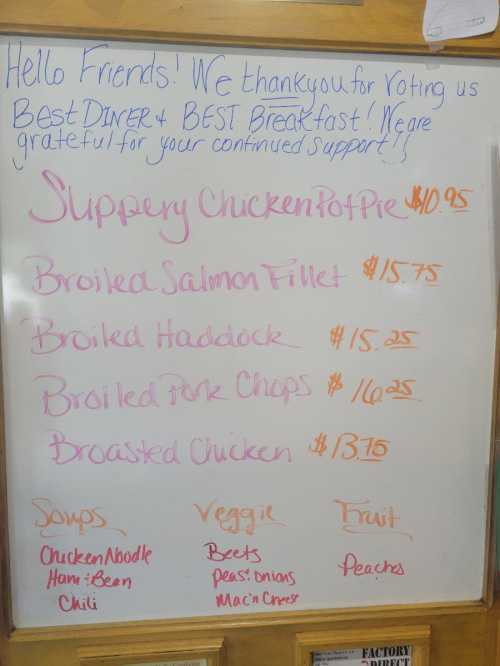 Hello Friends! We thankyou for Voting us
BEST DINER & BEST Breakfast! We are
grateful for your continued support!!
Slippery Chicken Pot Pie $10.95
Broiled Salmon Fillet $15.75
Broiled Haddock $15.25
Broiled Pork Chops $16.25
Broasted Chicken $13.75
Soups Veggie Fruit
Chicken Noodle Beets Peaches
Ham & Bean Peas & Onions
Chili Mac'n Cheese
FACTORY
DIRECT